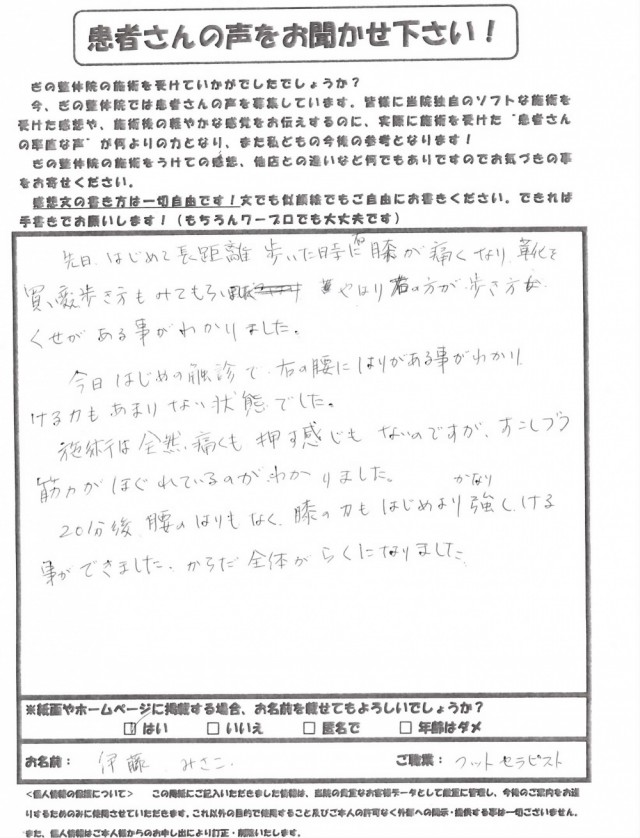 患者さんの声をお聞かせ下さい！
ぎの整体院の施術を受けていかがでしたでしょうか？
今、ぎの整体院では患者さんの声を募集しています。皆様に当院独自のソフトな施術を
受けた感想や、施術後の軽やかな感覚をお伝えするのに、実際に施術を受けた“患者さん
の率直な声”が何よりの力となり、また私どもの今後の参考となります！
ぎの整体院の施術をうけての感想、他店との違いなど何でもありですのでお気づきの事
をお寄せください。
感想文の書き方は一切自由です！文でも似顔絵でもご自由にお書きください。できれば
手書きでお願いします！（もちろんワープロでも大丈夫です）
先日、はじめて長距離歩いた日時に右膝が痛くなり、靴を
買い変歩き方もみてもらい やはり右の方が歩き方に
くせがある事がわかりました。
今日はじめの触診で、右の腰にはりがある事がわかり
ける力もあまりない状態でした。
施術は全然、痛くも押す感じもないのですが、すこしづつ
筋力がほぐれているのがわかりました。
20分後、腰のはりもなく、膝の力もはじめよりかなり強く、ける
事ができました。からだ全体がらくになりました。
※紙面やホームページに掲載する場合、お名前を載せてもよろしいでしょうか？
はい いいえ 匿名で 年齢はダメ
お名前： 伊藤 みさこ ご職業： フットセラピスト
＜個人情報の保護について＞ この用紙にご記入いただきました情報は、当院の貴重なお客様データとして厳重に管理し、今後のご案内をお送
りするためのみに使用させていただきます。これ以外の目的で使用すること及びご本人の許可なく外部への開示・提供する事は一切ございません。
また、個人情報はご本人様からのお申し出により訂正・削除いたします。